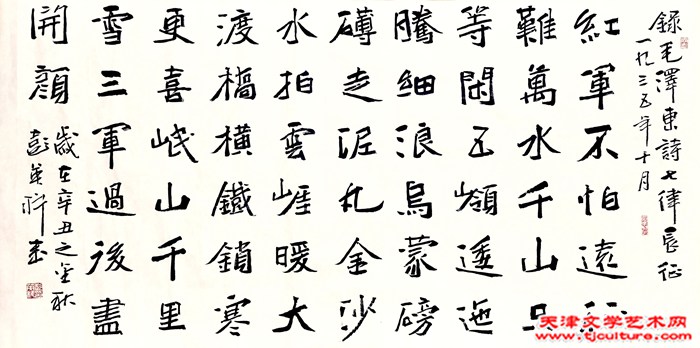 錄毛澤東詩七律長征
一九三五年十月
紅軍不怕遠征
難萬水千山只
等閑五嶺逶迤
騰細浪烏蒙磅
礴走泥丸金沙
水拍雲崖暖大
渡橋橫鐵鎖寒
更喜岷山千里
雪三軍過後盡
開顏
歲在辛丑之金秋
彭英書
天津文学艺术网
www.tjculture.com